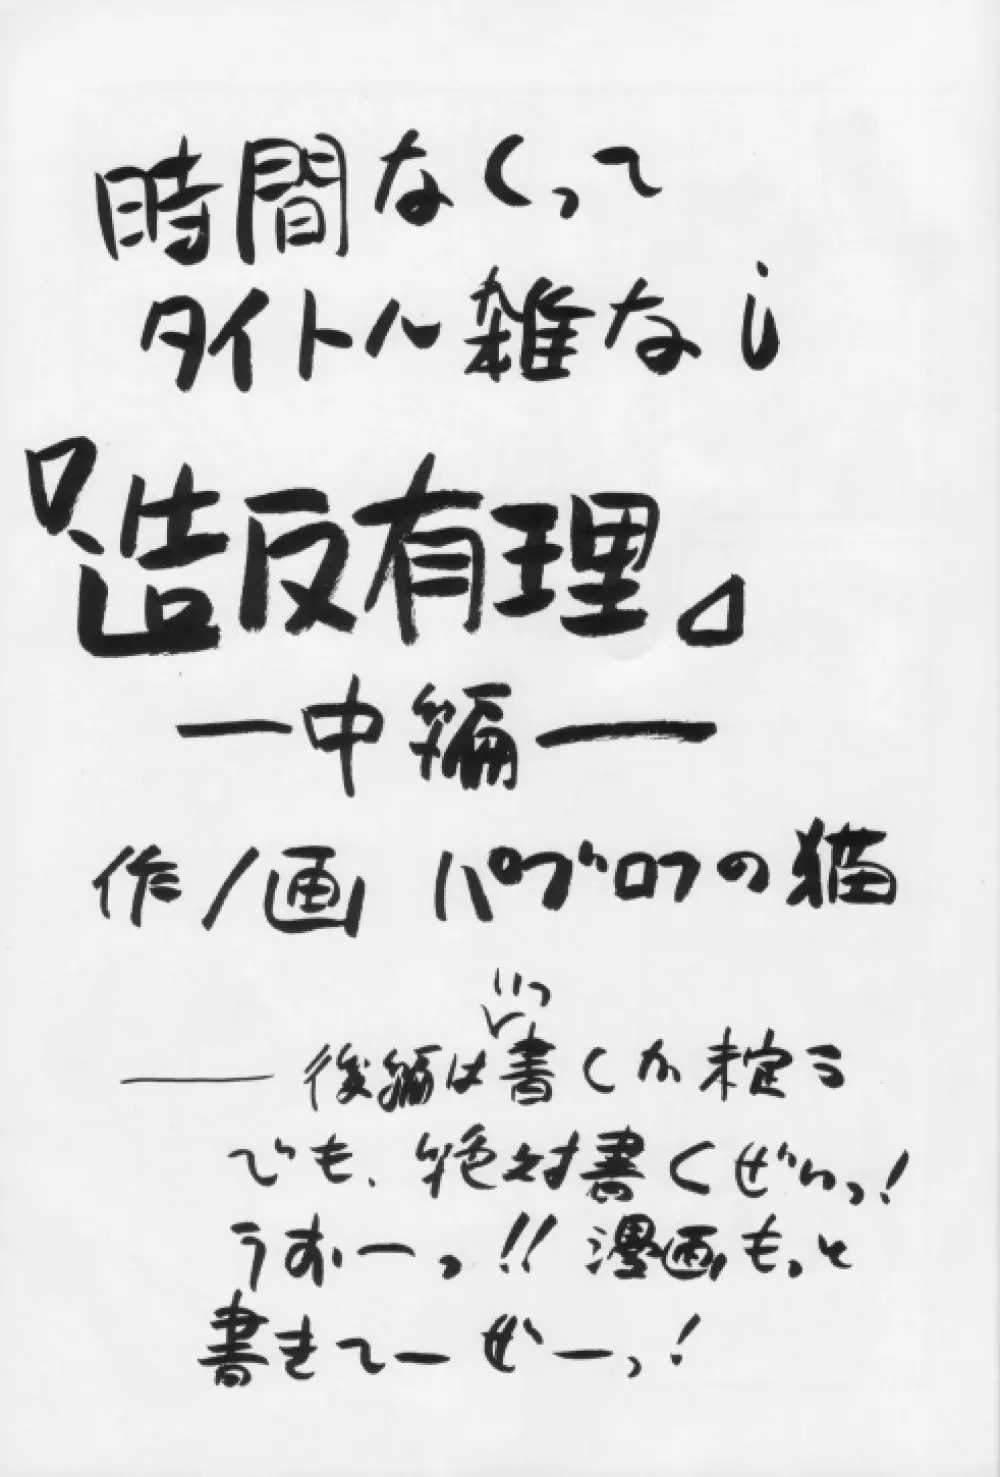 時間なくって
タイトル雑なし
『造反有理』
ー中編ー
作/画 パブロフの猫
いつ
―後編は書くか未定う
でも、絶対書くぜいっ!
うおーっ!!漫画もっと
書きてーぜーっ!